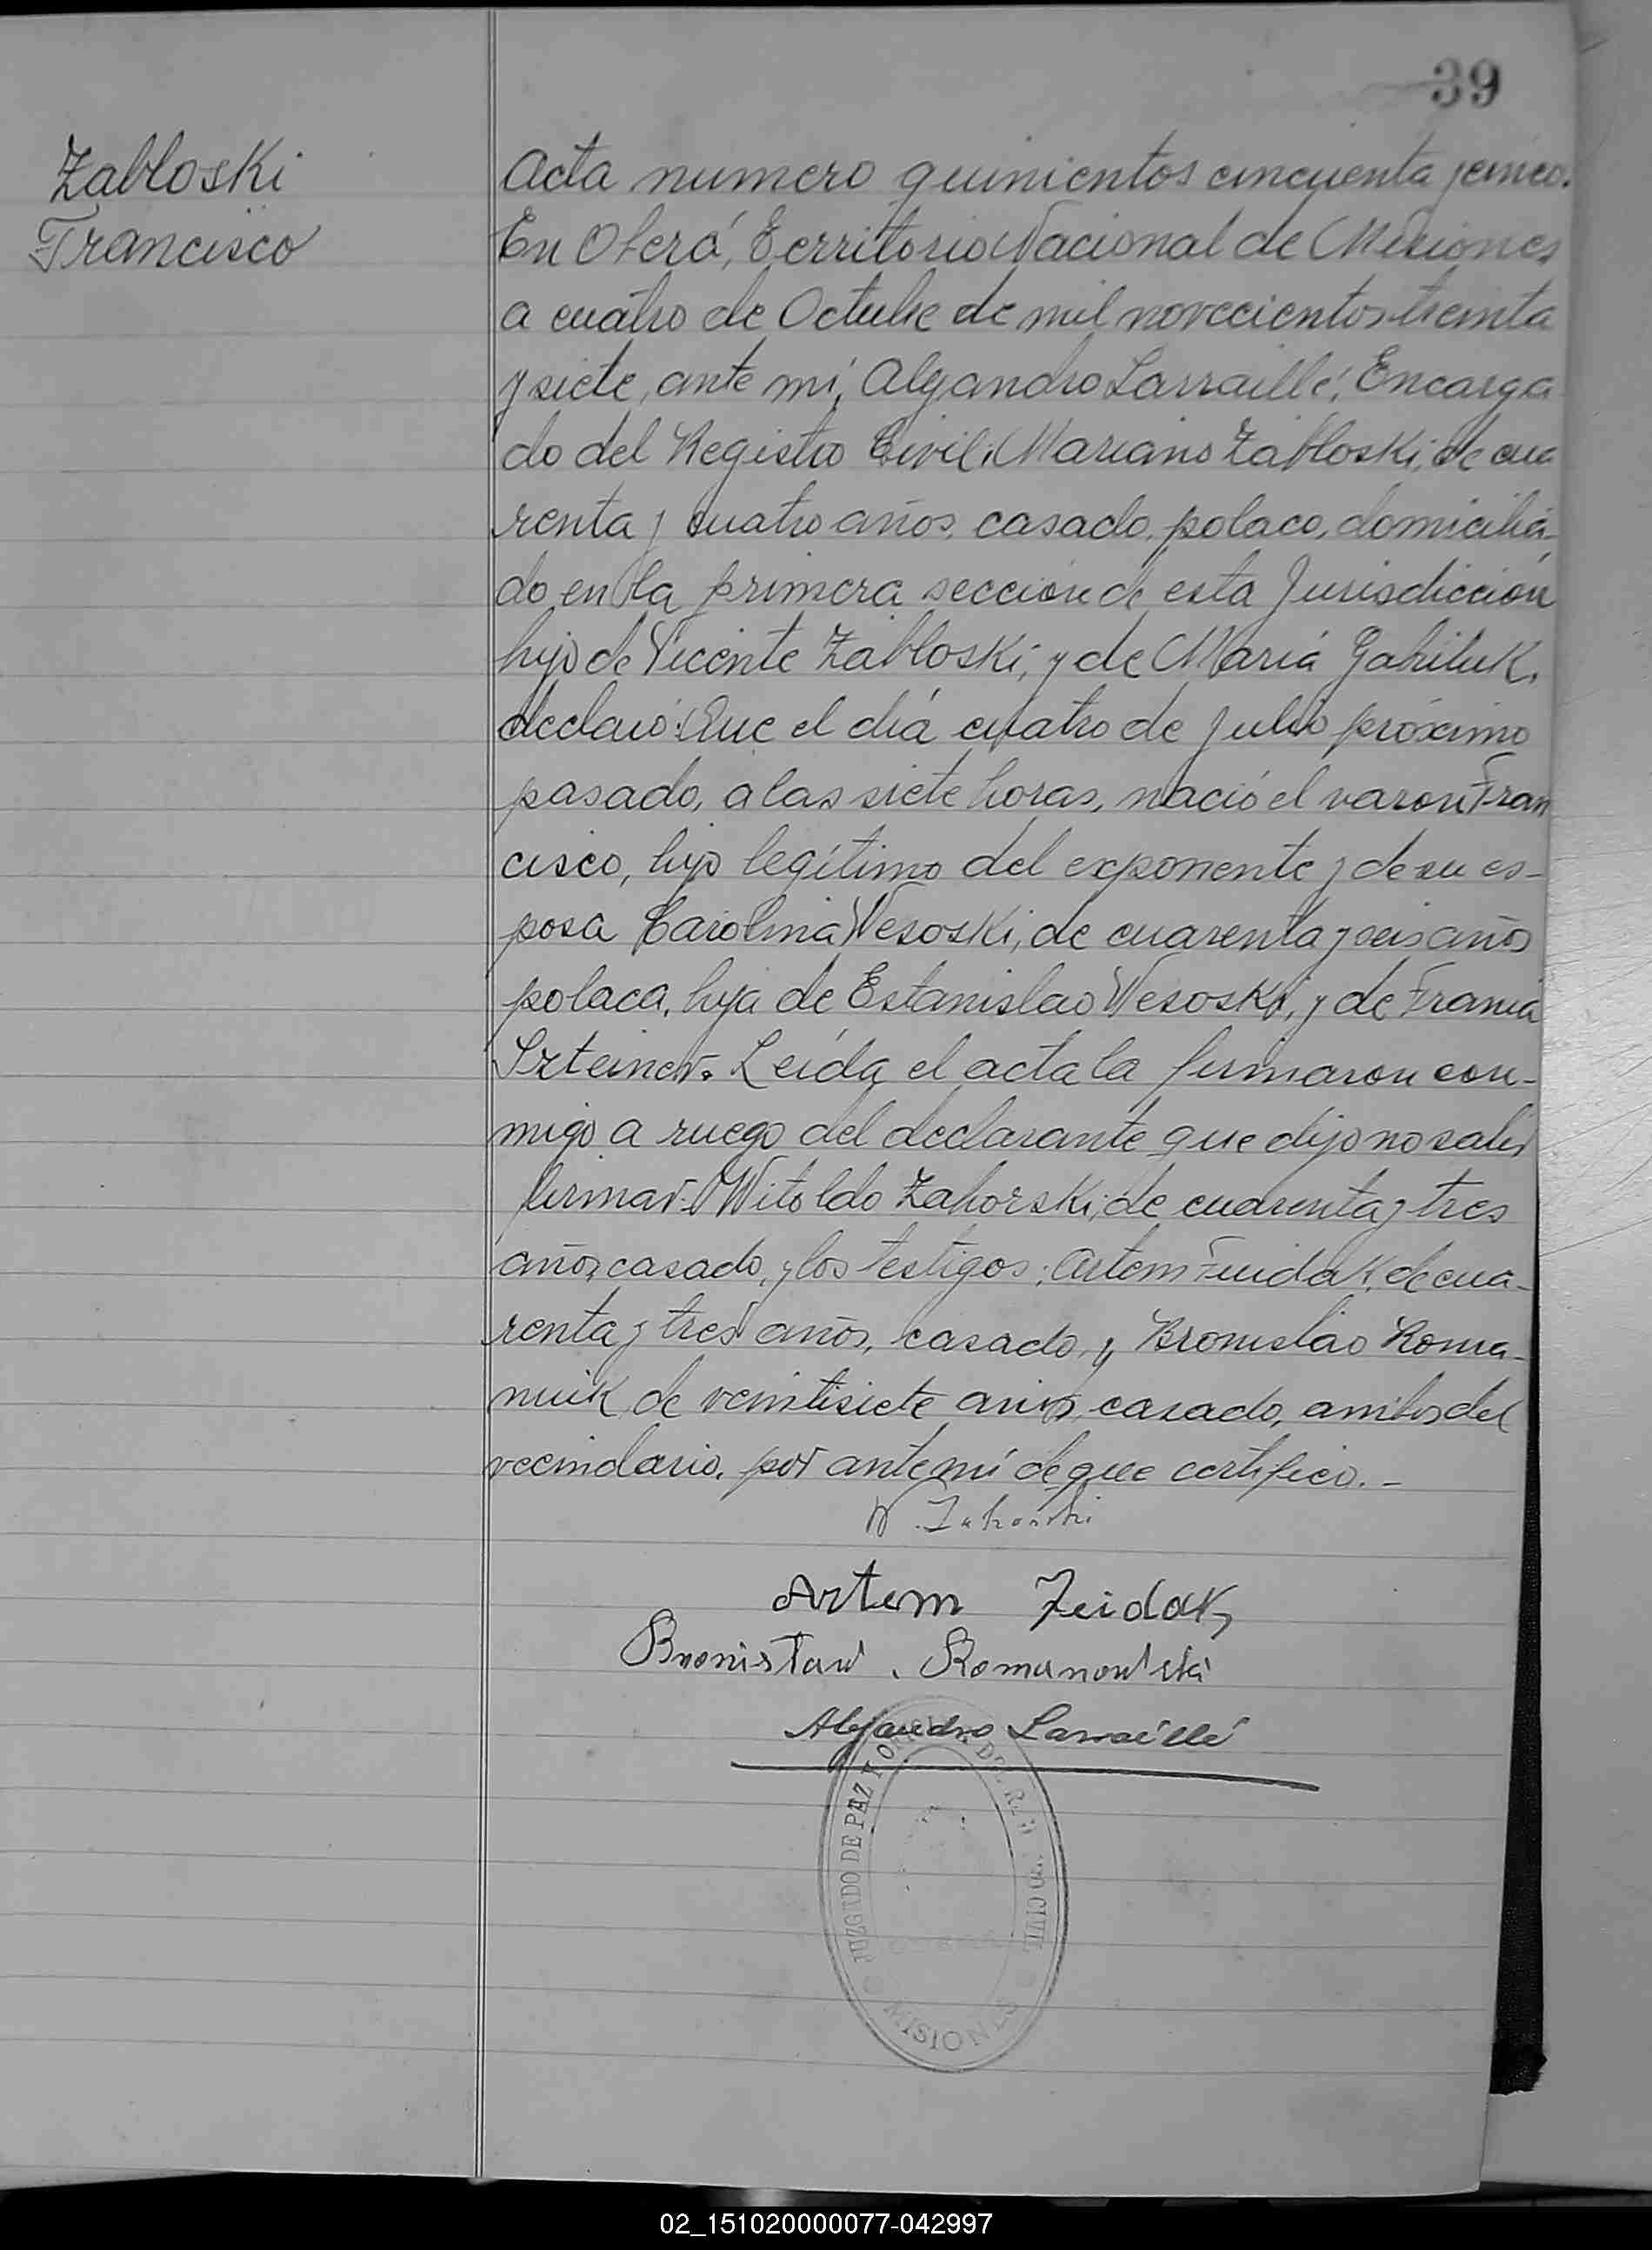 39
Zabloski
Francisco
Acta numero quinientos cincuenta y cinco.
En Oberá, Territorio Nacional de Misiones
a cuatro de Octubre de mil novecientos treinta
y siete, ante mí, Alejandro Larraillé, Encarga
do del Registro Civil; Mariano Zabloski, de cua
renta y cuatro años, casado, polaco, domicilia-
do en la primera sección de esta Jurisdicción
hijo de Vicente Zabloski, y de María Gabiluk,
declaró: Que el día cuatro de Julio próximo
pasado, a las siete horas, nació el varon Fran
cisco, hijo legítimo del exponente y de su es-
posa Carolina Wesoski, de cuarenta y seis años
polaca, hija de Estanislao Wesoski, y de Francia
Szteiner. Leída el acta la firmaron con-
migo a ruego del declarante que dijo no saber
firmar: Witoldo Zahorski, de cuarenta y tres
años, casado, y los testigos: Artem Fuidak, de cua-
renta y tres años, casado, y Bronislao Roma-
nuik, de veintisiete años, casado, ambos del
vecindario, por ante mí de que certifico.-
W. Zahorski
Artem Zeidak
Bronisław. Romanowski
Alejandro Larraillé
JUZGADO DE PAZ Y DEL CIVIL
MISIONES
02_151020000077-042997